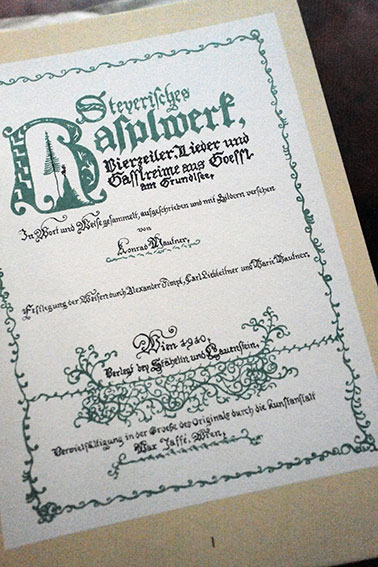 Steyerisches
Rasplwerk,
Vierzeiler, Lieder und
Gasslreime aus Goessl
am Grundlsee,
In Wort und Weise gesammelt, aufgeschrieben und mit Bildern versehen
von
Konrad Mautner,
Festlegung der Weisen durch Alexander Simpl, Carl Liebleitner und Marie Mautner.
Wien 1910,
Verlegt bei Stähelin und Lauenstein.
Vervielfältigung in der Groeße des Originals durch die Kunstanstalt
Max Jaffé, Wien.
1